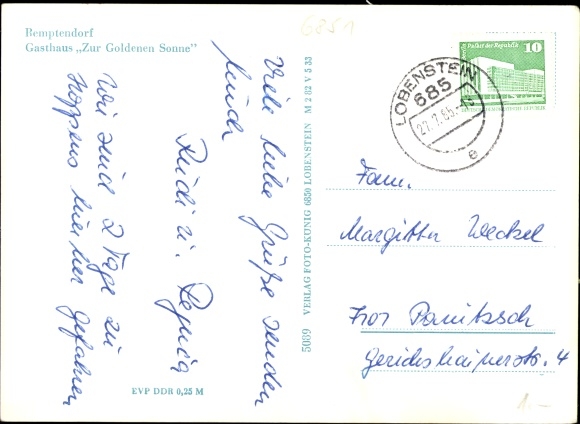 6851
Remptendorf
Gasthaus „Zur Goldenen Sonne"
Viele liebe Grüße senden
Euch
Rudi u. Regina
Wir sind 2 Tage zu
hierher gefahren
EVP DDR 0,25 M
5089 VERLAG FOTO-KÜNIG 6850 LOBENSTEIN M 2 82 V 5 33
Palast der Republik
10
LOBENSTEIN
685
27.7.85
e
Fam.
Margitta Weckel
7101 Panitzsch
Gerichshainerstr. 4
1.-